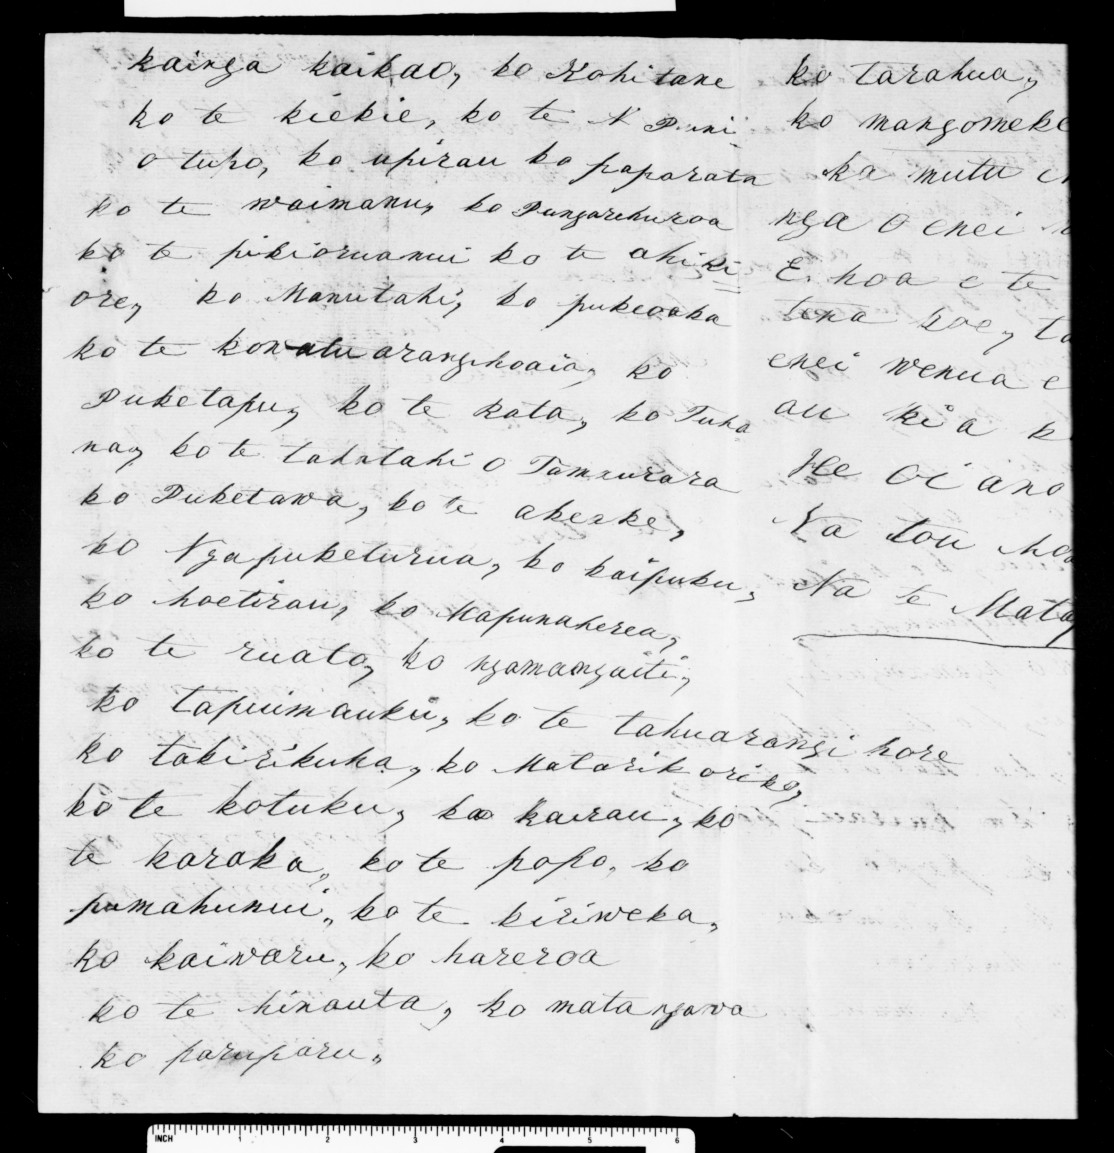 kainga kaikao, ko Kohitane
ko te kiekie, ko te N Puni
o tupo, ko upirau ko paparata
ko te waimanu, ko Pungarehuroa
ko te pikiorunui ko te ahiki=
ore, ko Manutahi, ko pukeoaka
ko te konatu arangihoaia, ko
Puketapu, ko te Rata, ko Tuha
na, ko te tahatahi o
ko Puketawa, ko te akeake,
ko Ngapuketurua, ko kaipuku,
ko hoetirau, ko Mapunaherea,
ko te ruato, ko ngamaongaiti,
ko tapuimauku, ko te tahuarangi hore
ko takirikuha, ko Matarikoriko,
ko te kotuku, ko kairau, ko
te karaka, ko te popo, ko
pumahunui, ko te kiriweka,
ko kaiwaru, ko hareroa
ko te hinauta, ko matangawa
ko paruparu,
ko tarahua,
ko mangomeke
ka mutu
nga o enei
E. hoa e te
tena koe,
enei wenua e
au kia
He oi ano
Na tou
Na te Mata
INCH 1 2 3 4 5 6